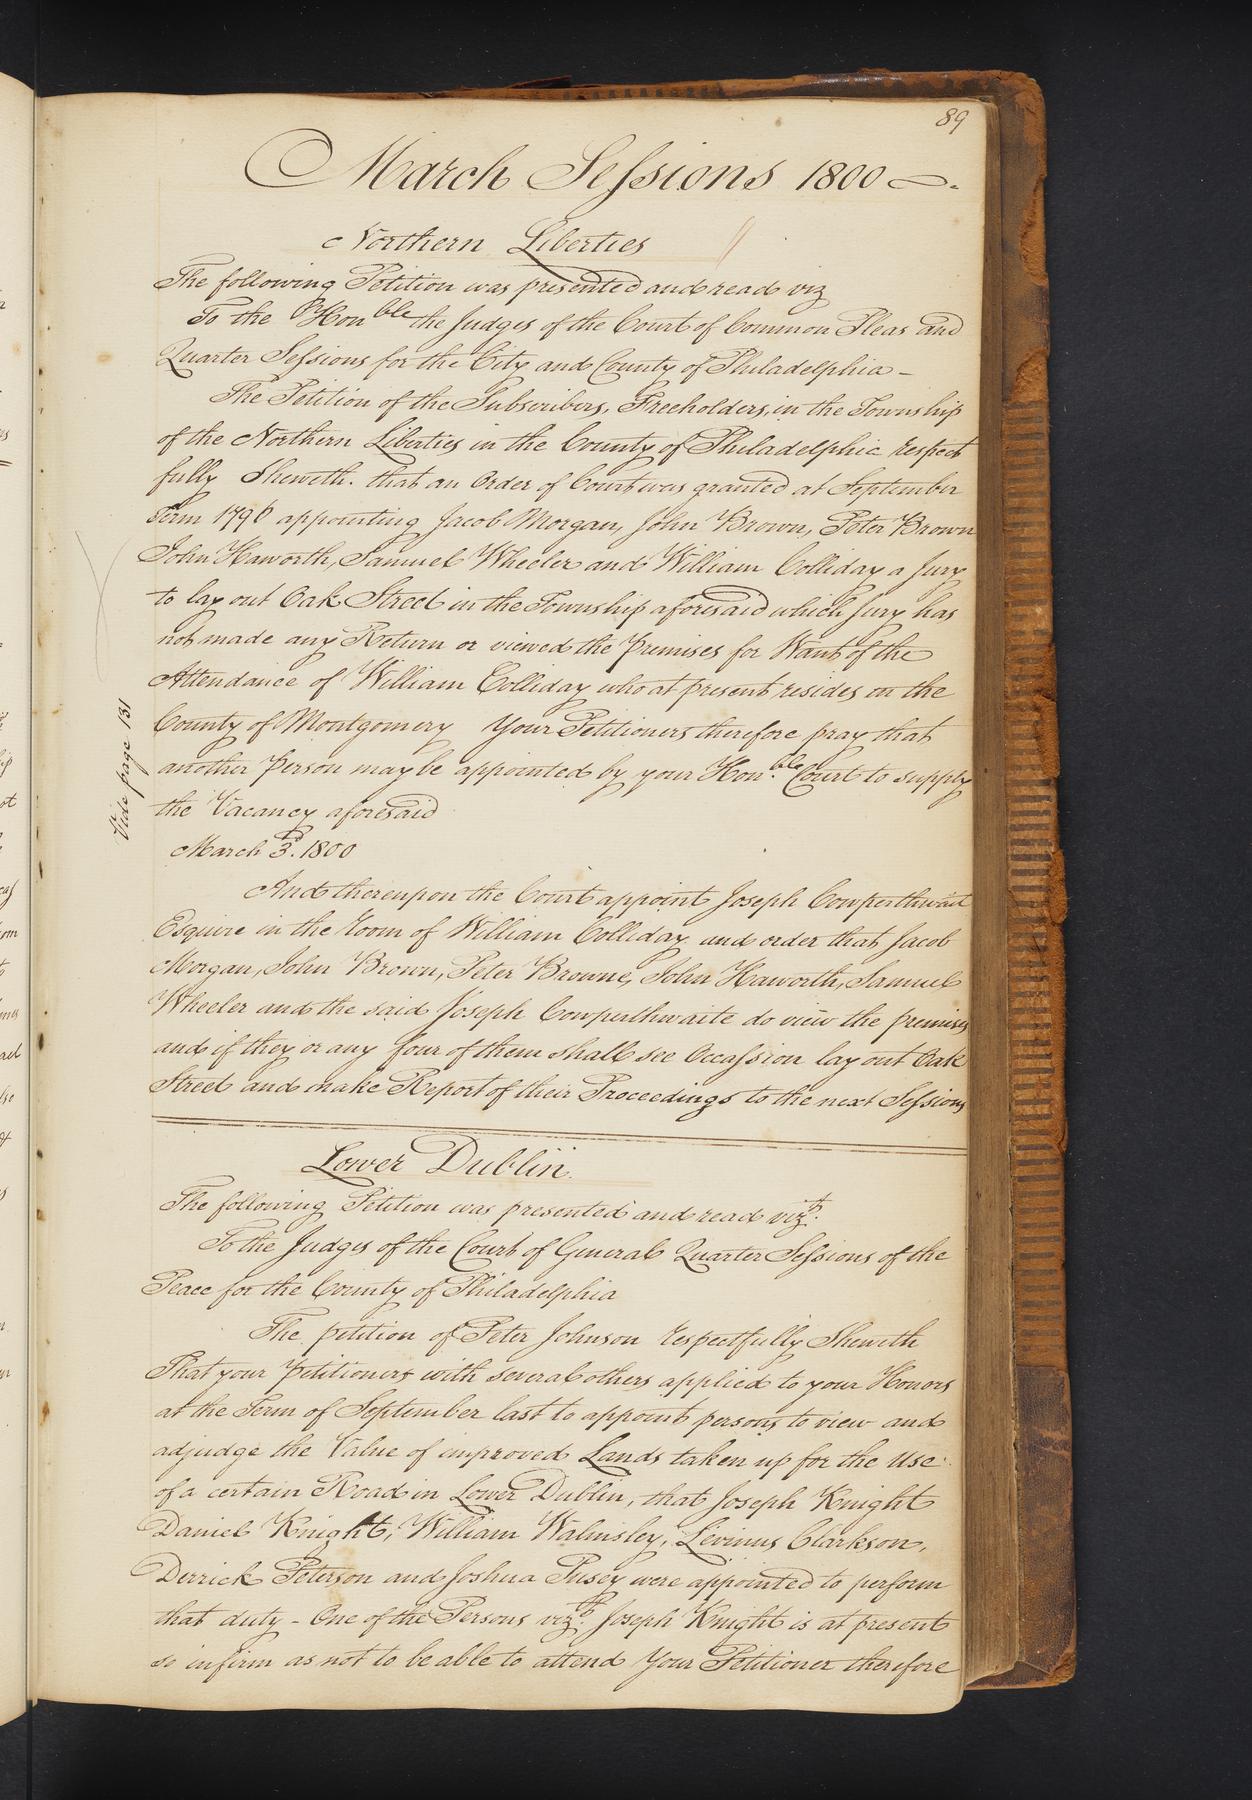 89
March Sessions 1800
Northern Liberties
The following Petition was presented and read viz
To the Honble the Judges of the Court of Common Pleas and
Quarter Sessions for the City and County of Philadelphia -
The Petition of the Subscribers, Freeholders, in the Township
of the Northern Liberties in the County of Philadelphia respect
fully Sheweth. that an Order of Court was granted at September
Term appointing Jacob Morgan, John Brown, Peter Brown
John Haworth, Samuel Wheeler and William Colliday a Jury
to lay out Oak Street in the Township aforesaid which Jury has
not made any Return or viewed the Premises for Want of the
Attendance of William Colliday who at present resides in the
County of Montgomery Your Petitioners therefore pray that
another Person may be appointed by your Honble Court to supply
the Vacancy aforesaid
March 3d. 1800
Vide page 131
And thereupon the Court appoint Joseph Cowperthwait
Esquire in the Room of William Colliday and order that Jacob
Morgan, John Brown, Peter Browne, John Haworth, Samuel
Wheeler and the said Joseph Cowperthwaite do view the premises
and if they or any four of them shall see Occassion lay out Oak
Street and make Report of their Proceedings to the next Sessions
Lower Dublin.
The following Petition was presented and read vizt.
To the Judges of the Court of General Quarter Sessions of the
Peace for the County of Philadelphia
The petition of Peter Johnson respectfully Sheweth
That your Petitioners with several others applied to your Honors
at the Term of September last to appoint persons to view and
adjudge the Value of improved Lands taken up for the Use
of a certain Road in Lower Dublin, that Joseph Knight
Daniel Knight, William Walmsley, Levinus Clarkson,
Derrick Peterson and Joshua Pusey were appointed to perform
that duty - One of the Persons vizt. Joseph Knight is at present
so infirm as not to be able to attend Your Petitioner therefore